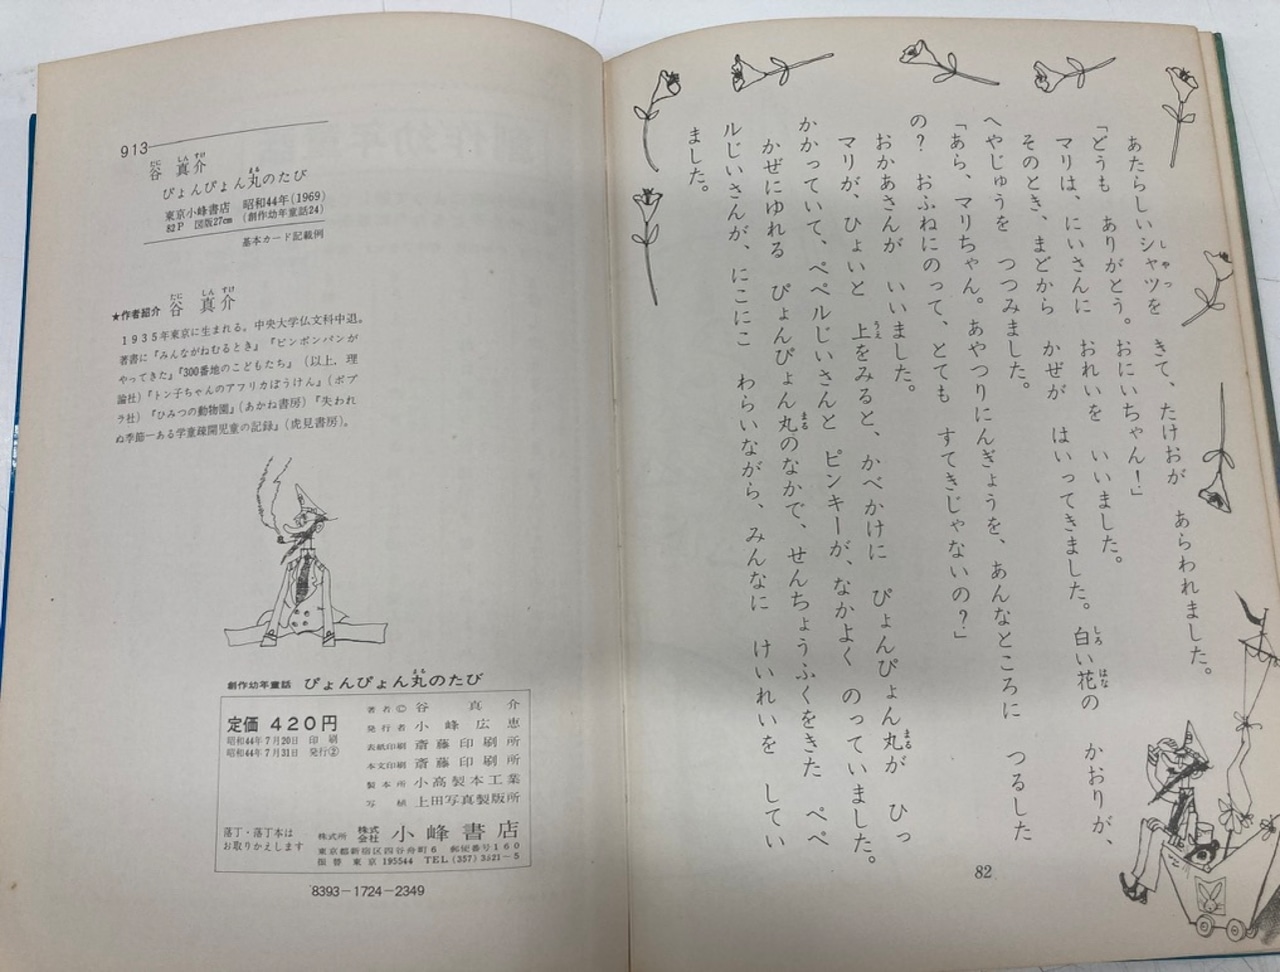 913
谷 真介
ぴょんぴょん丸のたび
東京小峰書店 昭和44年(1969)
82P 図版27cm (創作幼年童話24)
基本カード記載例
★作者紹介 谷 真介
1935年東京に生まれる。中央大学仏文科中退。
著書に『みんながねむるとき』『ピンポンパンが
やってきた』『300番地のこどもたち』(以上,理
論社)『トン子ちゃんのアフリカぼうけん』(ポプ
ラ社)『ひみつの動物園』(あかね書房)『失われ
ぬ季節―ある学童疎開児童の記録』(虎見書房)。
創作幼年童話 ぴょんぴょん丸のたび
定価 420円
昭和44年7月20日 印刷
昭和44年7月31日 発行②
著者© 谷 真介
発行者 小峰広恵
表紙印刷 斎藤印刷所
本文印刷 斎藤印刷所
製本所 小高製本工業
写植 上田写真製版所
落丁・落丁本は
お取りかえします
株式所 株式会社 小峰書店
東京都新宿区四谷舟町6 郵便番号160
振替 東京195544 TEL(357)3521-5
8393-1724-2349
あたらしいシャツを きて、たけおが あらわれました。
「どうも ありがとう。おにいちゃん!」
マリは、にいさんに おれいを いいました。
そのとき、まどから かぜが はいってきました。白い花の かおりが、
へやじゅうを つつみました。
「あら、マリちゃん。あやつりにんぎょうを、あんなところに つるした
の? おふねにのって、とても すてきじゃないの?」
おかあさんが いいました。
マリが、ひょいと 上をみると、かべかけに ぴょんぴょん丸が ひっ
かかっていて、ペペルじいさんと ピンキーが、なかよく のっていました。
かぜにゆれる ぴょんぴょん丸のなかで、せんちょうふくをきた ペペ
ルじいさんが、にこにこ わらいながら、みんなに けいれいを してい
ました。
82